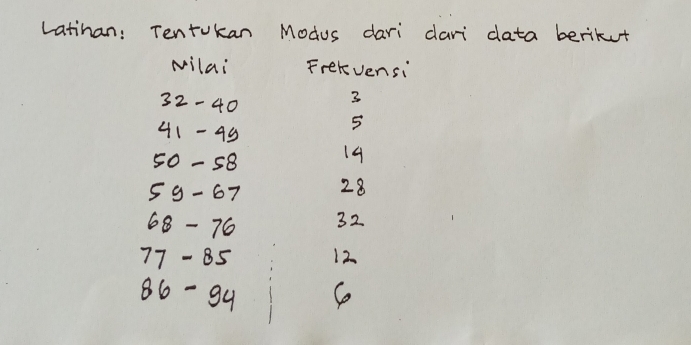 Latihan: Tentukan Modus dari dari data berikut
Nilai Frekuensi
32 - 40 3
41 - 49 5
50 - 58 14
59 - 67 28
68 - 76 32
77 - 85 12
86 - 94 6